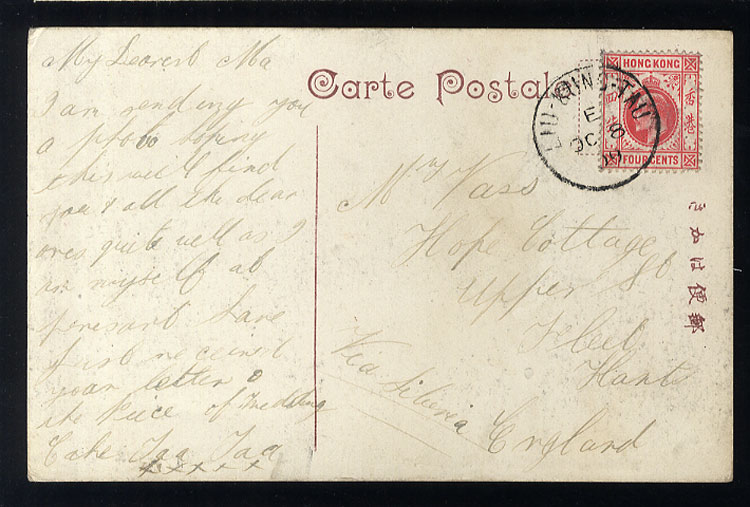 My Dearest Ma
I am sending you
a photo hoping
this will find
you & all the dear
ones quite well as I
am myself at
presant have
just receive
your letter &
the Piece of Wedding
Cake Taa Taa
x x x x x
Carte Postal
HONG KONG
香港
FOUR CENTS
LIU-KUNG-TAU
E
OC
Mrs Vass
Hope Cottage
Upper St
Fleet
Hants
England
Via Siberia
きかは便郵